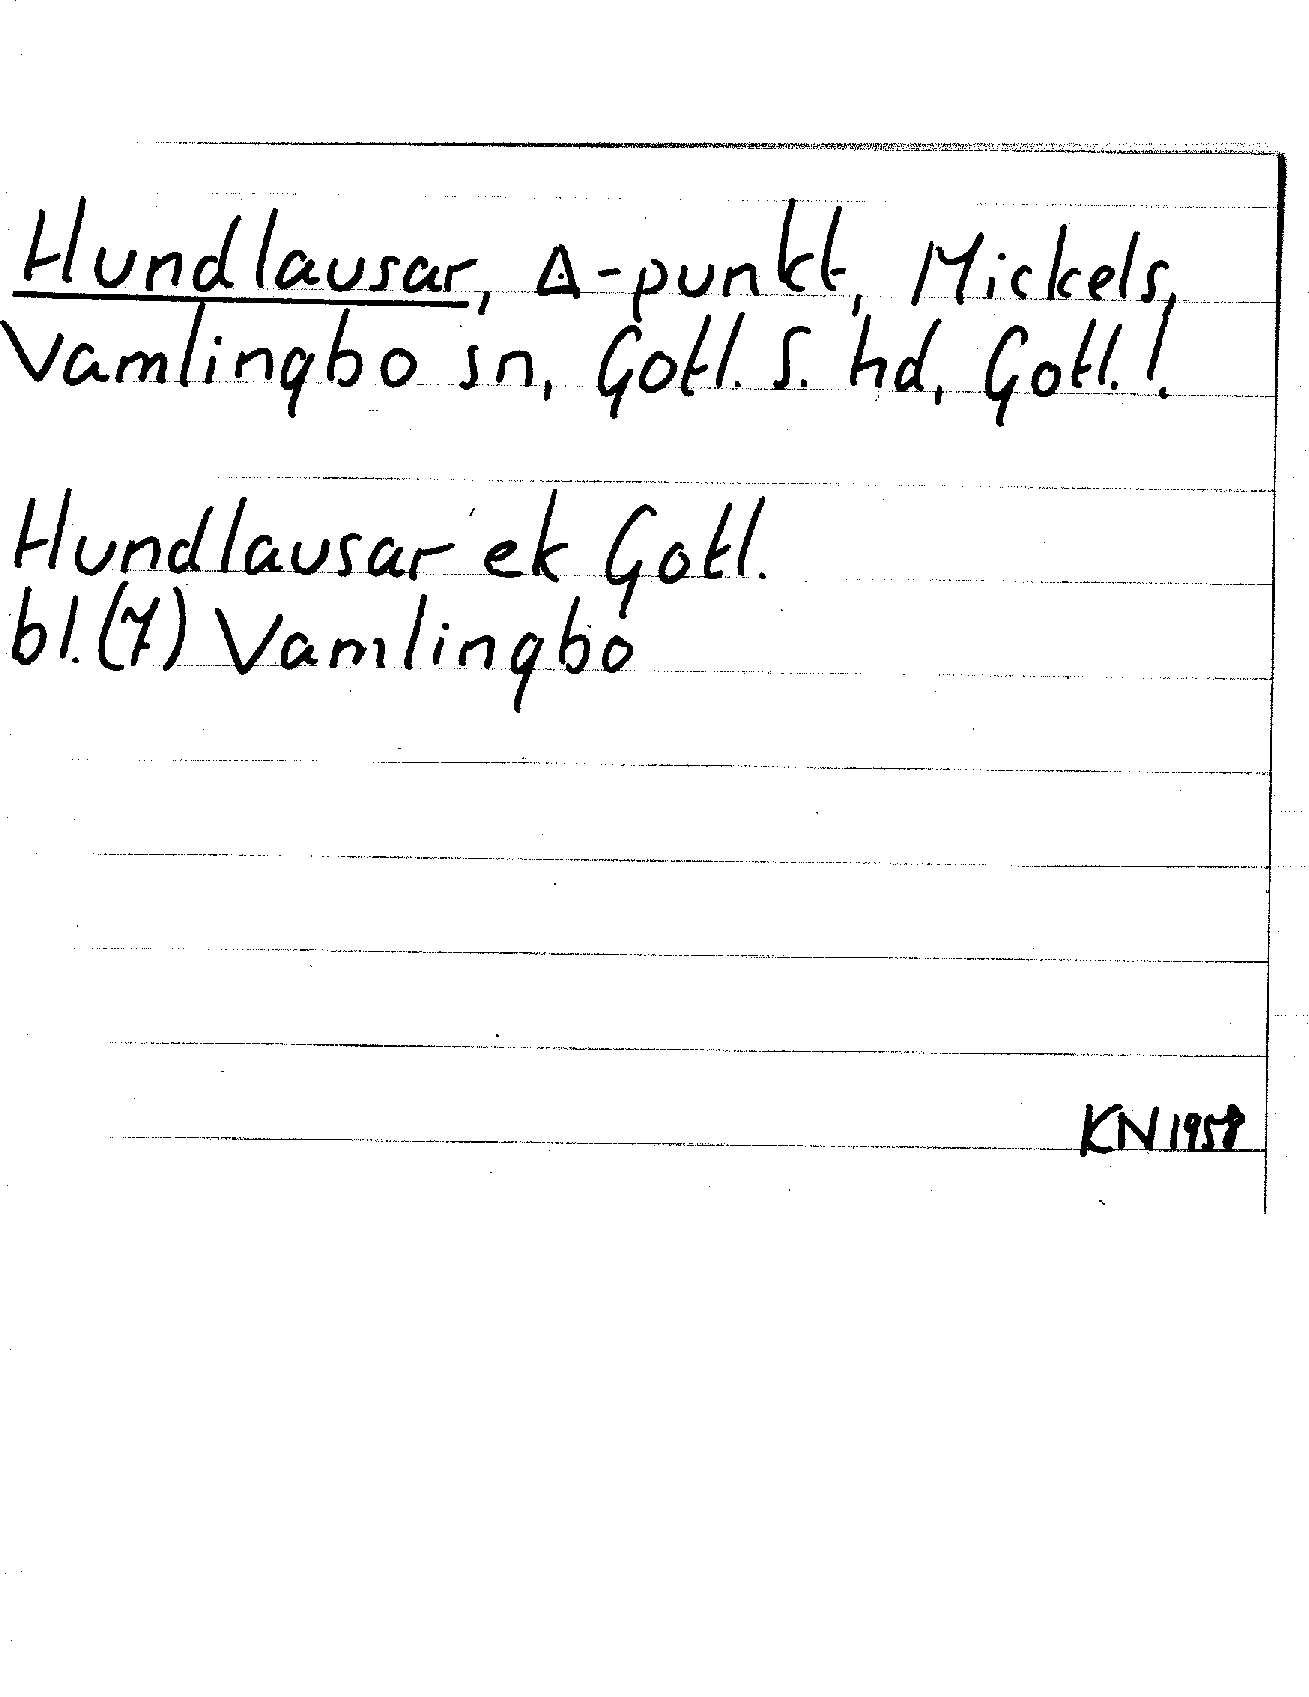 Hundlausar, Δ-punkt, Mickels,
Vamlingbo sn, Gotl. S. hd, Gotl. l.
Hundlausar ek Gotl.
bl. (7) Vamlingbo
KN 1958